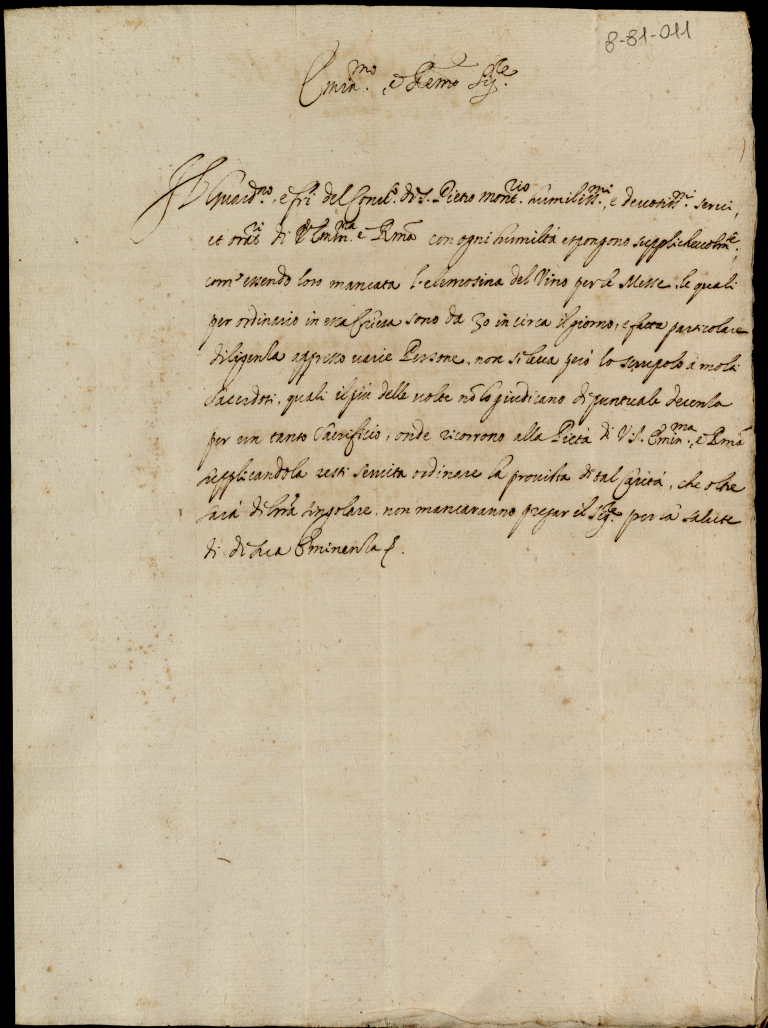 8-81-011
Emin.mo, e R.emo Sig.re
Il Guard.no, e fr̃i del Conv.to di S. Pietro mont.rio humiliss.mi, e devotiss.i servi,
et orat.ri di V. Emin.ma e Rma con ogni humiltà espongono supplichevolm.te,
com' essendo loro mancata l'elemosina del Vino per le Messe, le quali
per ordinario in essa Chiesa sono da 30 in circa il giorno, e fatta particolare
diligenza appresso varie Persone, non si leva però lo scrupolo à molti
Sacerdoti, quali il più delle volte nõ lo giudicano di puntuale decenza
per un tanto Sacrificio, onde ricorrono alla Pietà di V.S. Emin.ma, e Rma
supplicandola resti servita ordinare la provista di tal Carità, che oltre
sarà di gr̃a singolare, non mancaranno pregar il Sig.re per la salute
di di Sua Eminenza